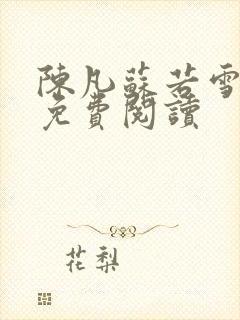 陳凡蘇若雪
免費閱讀
花梨